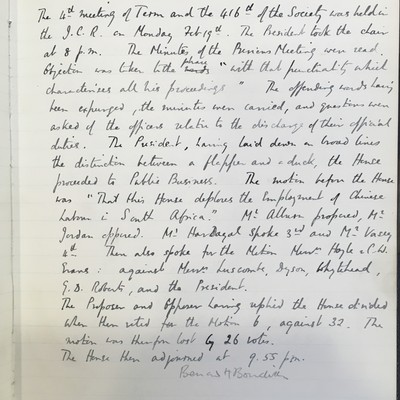 The 4th meeting of Term and the 416th of the Society was held in
the J.C.R. on Monday Feb 19th. The President took the chair
at 8 p.m. The Minutes of the Previous Meeting were read.
Objection was taken to the phrase "with that punctuality which
characterises all his proceedings" The offending words having
been expunged, the minutes were carried, and questions were
asked of the officers relative to the discharge of their official
duties. The President, having laid down on broad lines
the distinction between a flapper and a duck, the House
proceeded to Public Business. The motion before the House
was "That this House deplores the Employment of Chinese
Labour in South Africa." Mr proposed, Mr
Jordan opposed. Mr spoke 3rd and Mr Vacey
4th. There also spoke for the Motion Messrs. Hoyle & C.W.
Evans: against Messrs. Luscombe, Dyson, Whytehead,
G.D. Roberts, and the President.
The Proposer and Opposer having replied the House divided
when there voted for the Motion 6, against 32. The
motion was thereupon lost by 26 votes.
The House then adjourned at 9.55 p.m.